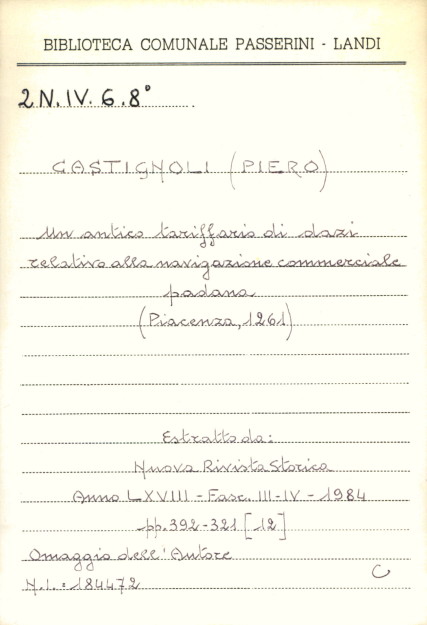 BIBLIOTECA COMUNALE PASSERINI - LANDI
2 N. IV. 6. 8°
CASTIGNOLI (PIERO)
Un antico tariffario di dazi
relativo alla navigazione commerciale
padana
(Piacenza, 1261)
Estratto da:
Nuova Rivista Storica
Anno LXVIII - Fasc. III-IV - 1984
pp. 392-321 [12]
Omaggio dell'Autore
N.I. : 184472
C